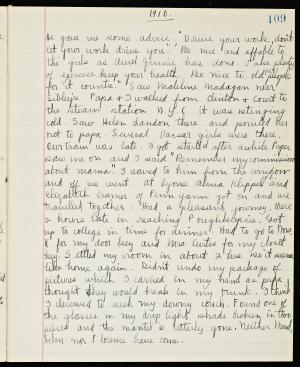 1910.
109
he gave me some advice "Drive your work, don't
let your work drive you." Be nice and affable to
the girls as Aunt Jennie has done. Take plenty
of exercise keep your health. Be nice to old people
for it counts." Saw Madeline Madagan near
Sibley's. Papa + I walked from Clinton + Court to
the steam station N.Y.C. it was stinging
cold. Saw Helen Landon there and pointed her
out to papa. Several Vassar girls were there.
Our train was late. I got started after awhile Papa
saw me on and I said "Remember my commission
about mama." I waved to him from the window
and off we went. At Lyons Alma Klippel and
Elizabeth Cramer of Penn Yann got on and we
travelled together. Had a pleasant journey. Were
2 hours late in reaching Poughkeepsie. Got
up to college in time for dinner. Had to go to Mrs
K for my door key and Mrs Curtis for my closet
key. Settled my room in about 2 hrs. So it seems
like home again. Didn't undo my package of
pictures which I carried in my hand as papa
thought they would break in my trunk. I think
I deserved to seek my downy couch. Found one of
the glasses in my drop light shade broken in two
pieces and the mantle utterly gone. Neither Maud,
Helen nor Florence have come.